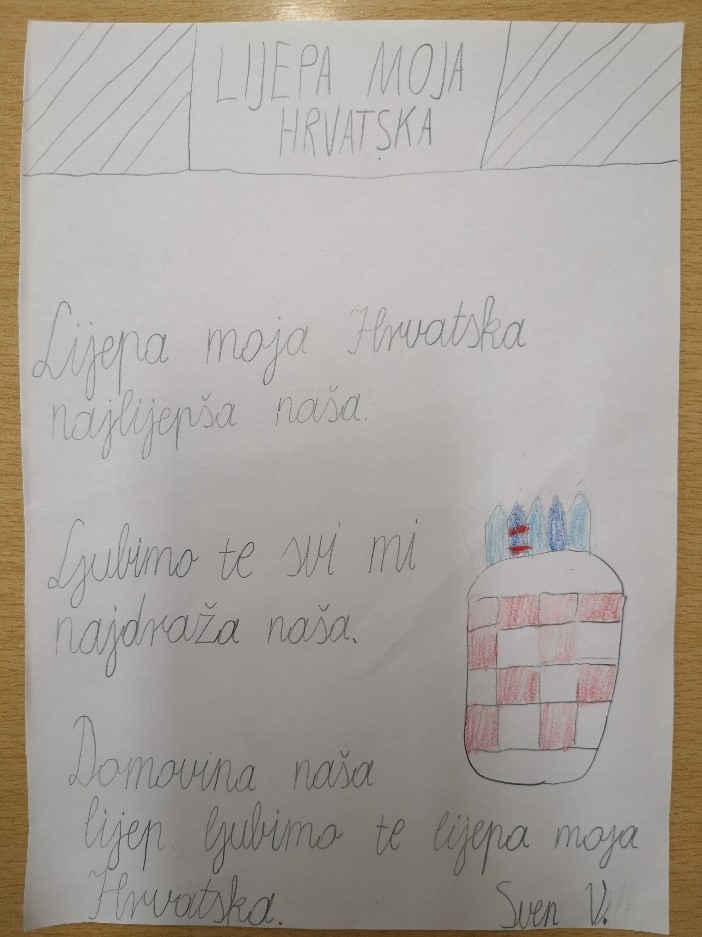 LIJEPA MOJA
HRVATSKA
Lijepa moja Hrvatska
najlijepša naša.
Ljubimo te svi mi
najdraža naša.
Domovina naša
lijep. ljubimo te lijepa moja
Hrvatska.
Sven V.